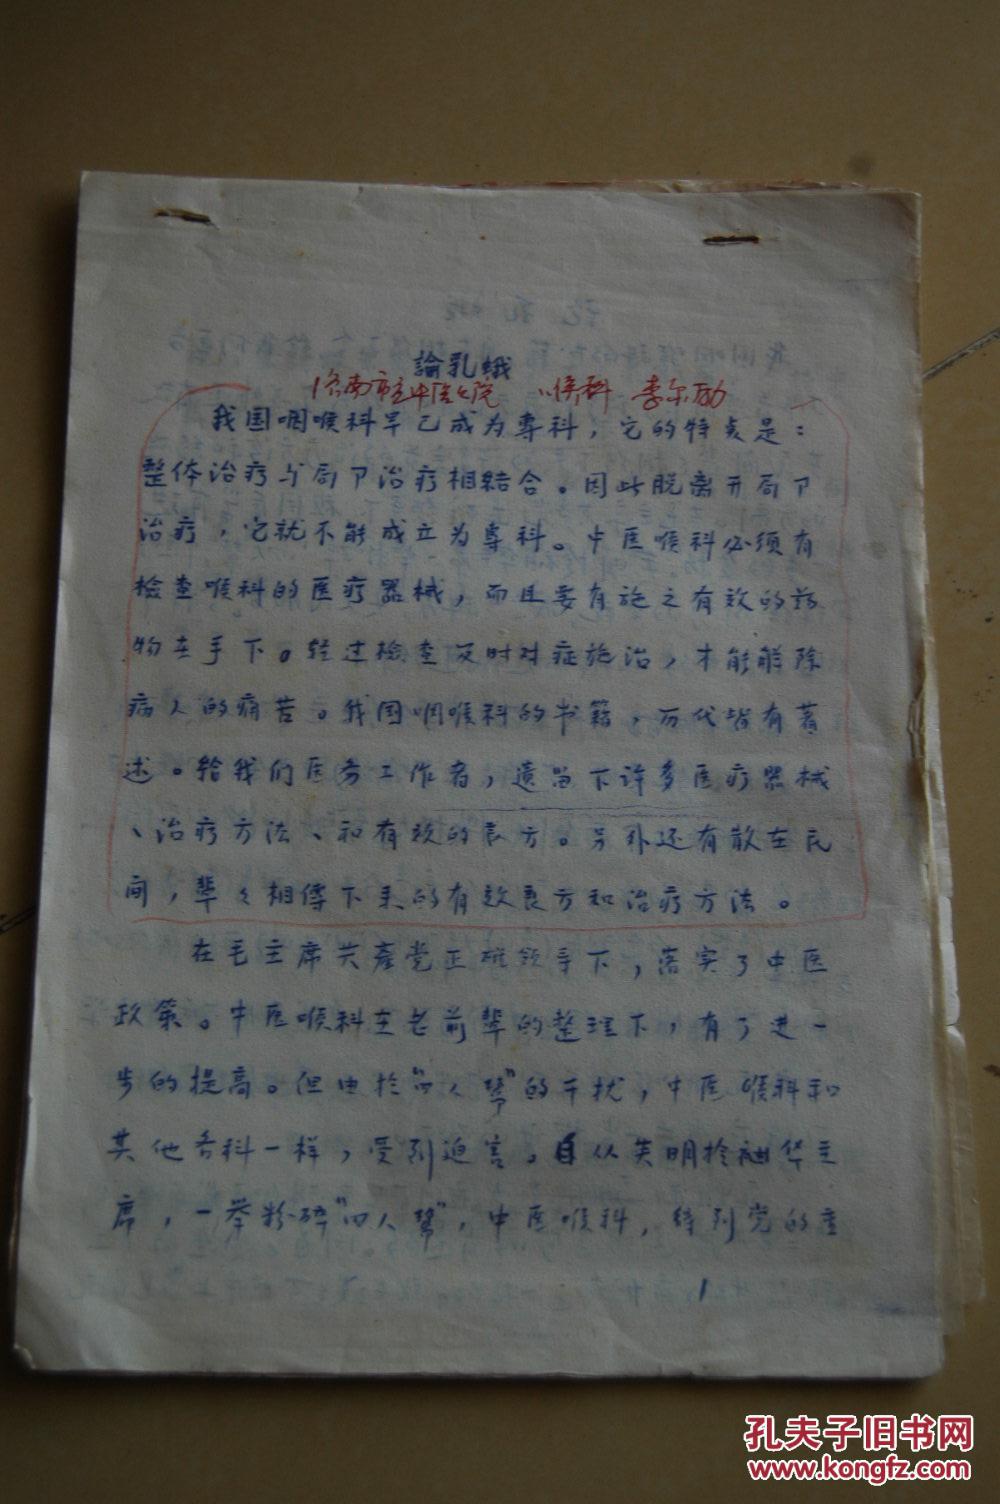 論乳蛾
济南市立中医医院 喉科 李尔励
我国咽喉科早已成为專科，它的特点是：
整体治疗与局卩治疗相結合。因此脱离开局卩
治疗，它就不能成立为專科。中医喉科必须有
检查喉科的医疗器械，而且要有施之有效的药
物在手下。经过检查及时对症施治，才能解除
病人的痛苦。我国咽喉科的书籍，历代皆有著
述。给我们医务工作者，遗留下许多医疗器械
、治疗方法、和有效的良方。另外还有散在民
间，輩々相傳下来的有效良方和治疗方法。
在毛主席共產党正確领导下，落实了中医
政策。中医喉科在老前輩的整理下，有了进一
步的提高。但由於“四人幫”的干扰，中医喉科和
其他各科一样，受到迫害。自从英明領袖华主
席，一举粉碎“四人幫”，中医喉科，得到党的重
1
孔夫子旧书网
www.kongfz.com